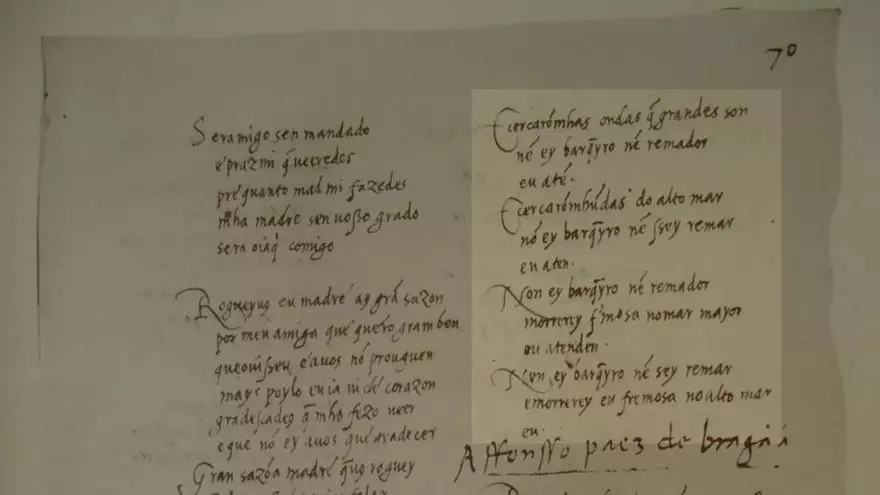 70
Seramigo sen mandado
e praz mi q̃ ueeredes
pre quanto mal mi fazedes
mha madre sen uosso grado
sera oiaq̃ comigo
Rogueyuꝯ eu madre ay grã sazon
por meu amiga que quero gram ben
que ouisseu e auos nõ prouguen
mays poylo eu ia uide corazon
gradescades q̃ mho fezo ueer
e que nõ ey auos que gradecer
Gran sazõ a madre q̃uꝯ roguey
Ecercarõmhas ondas q̃ grandes son
nẽ ey barq̃yro nẽ remador
eu atẽ.
Ecercarõmhũdas do alto mar
nõ ey barq̃yro nẽ ssey remar
eu aten.
Non ey barq̃yro nẽ remador
morrerey fꝰmosa no mar mayor
eu atenden.
Non ey barq̃yro nẽ sey remar
e morrerey eu fremosa no alto mar
eu.
Affonsso paez de braga